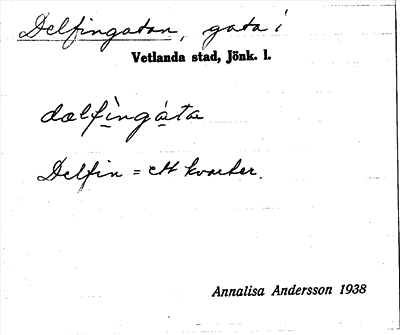 Delfingatan, gata i
Vetlanda stad, Jönk. l.
dælfìngáta
Delfin = ett kvarter.
Annalisa Andersson 1938